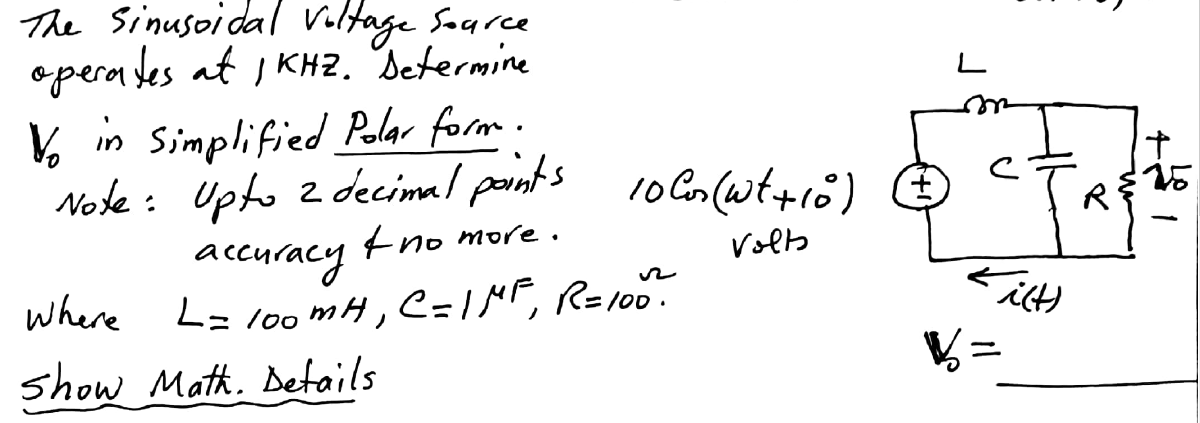 The Sinusoidal Voltage Source
operates at 1 KHZ. Determine
V₀ in Simplified Polar form.
Note: Upto 2 decimal points
accuracy & no more.
Where L = 100 mH, C = 1 μF, R = 100 Ω.
Show Math. Details
10 Cos(ωt + 10°)
Volts
L
+
-
C
R
+
v₀
-
i(t)
V₀ =